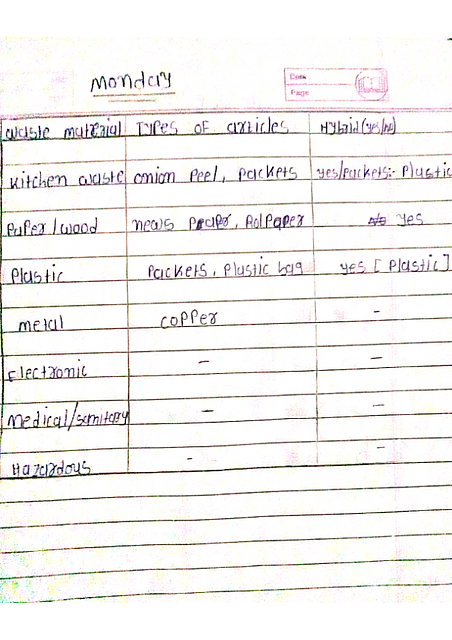 Monday
Date
Page
Waste material Types of articles Hybrid (yes/no)
Kitchen waste onion peel, packets yes/packets:- Plastic
Paper/wood news paper, Rolpaper No yes
Plastic Packets, Plastic bag yes [Plastic]
metal copper -
Electronic - -
Medical/sanitary - -
Hazardous - -